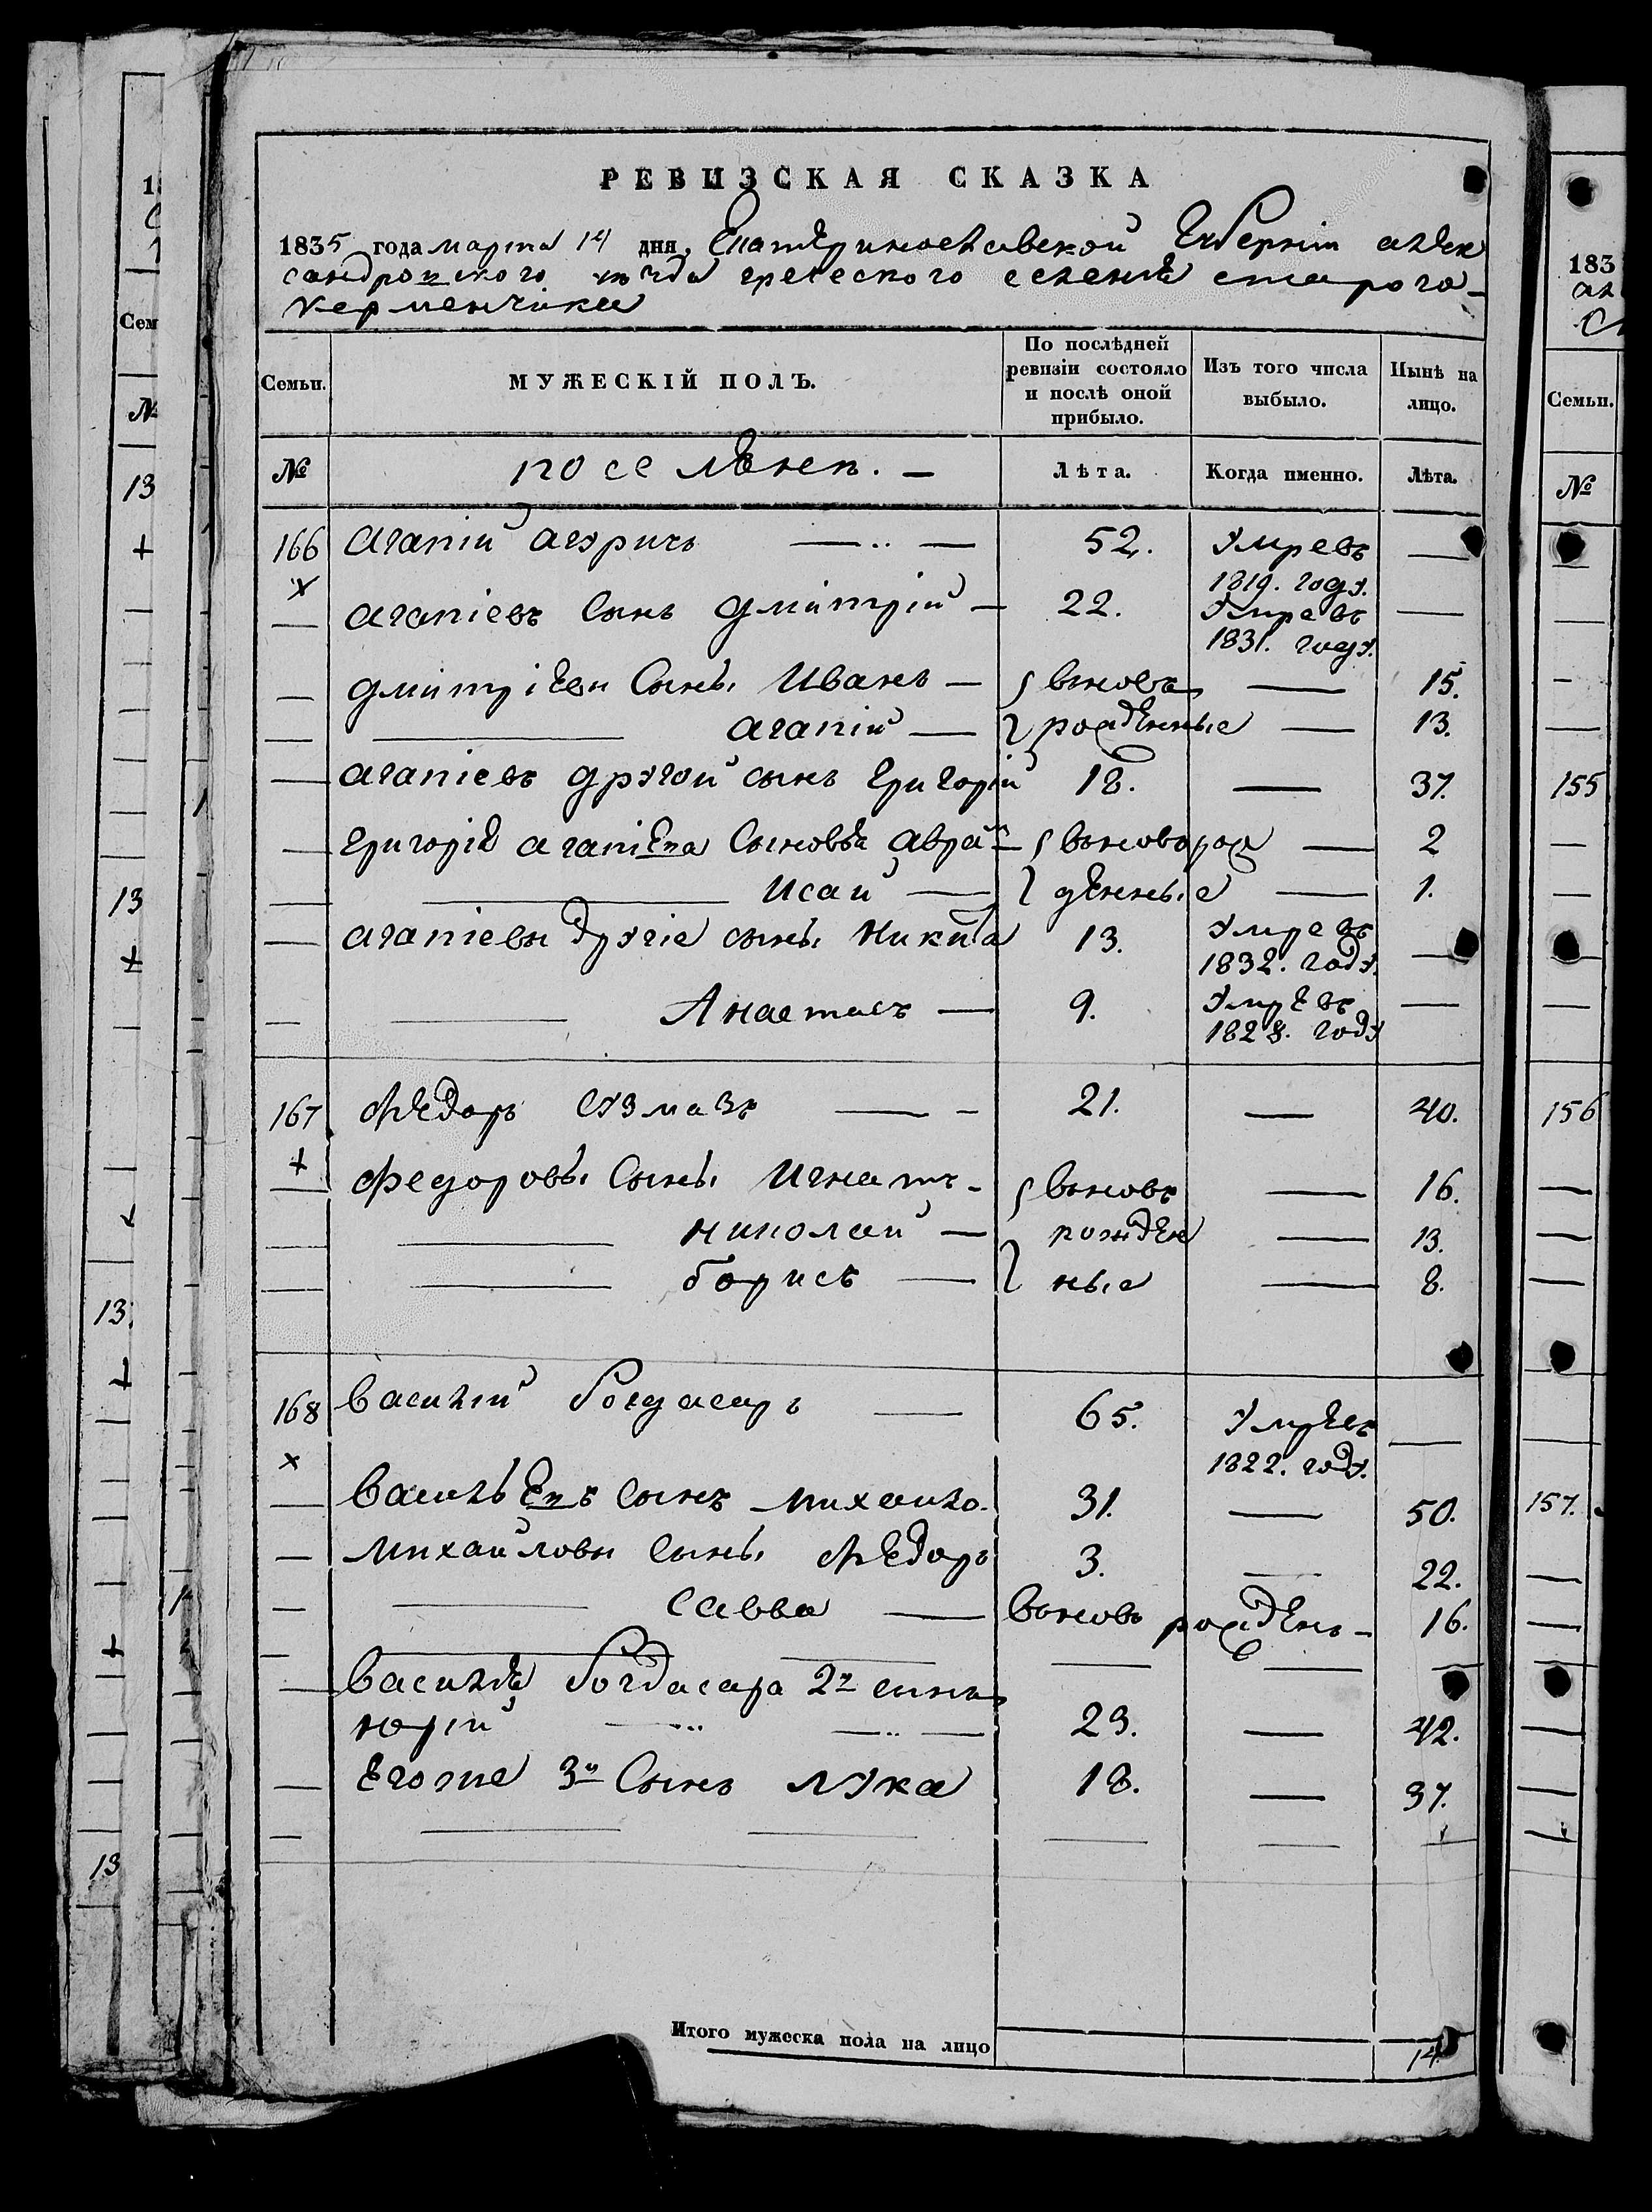 РЕВИЗСКАЯ СКАЗКА
1835 года марта 14 дня, Екатеринославской Губерніи алек
сандровского уезда греческого селенія старого
керменчика
Семьи. МУЖЕСКІЙ ПОЛЪ. По послѣдней ревизіи состояло и послѣ оной прибыло. Изъ того числа выбыло. Нынѣ на лицо.
№ поселѣнеп. Лѣта. Когда именно. Лѣта.
166 Агапій 52. Умревъ
1819. году.
Агапіевъ Сынъ Дмитрій 22. Умревъ
1831. году.
Дмитріеви Сыны Иванъ вьновъ 15.
Агапій рожденные 13.
Агапіевъ другой сынъ Григорій 18. 37.
Григорія Агапіева Сыновья Аврам вьноворож 2
Исай денные 1.
Агапіевы другіе сыны Никита 13. Умревъ
1832. году.
Анастасъ 9. Умревъ
1828. году
167 Федоръ 21. 40.
Федоровы Сыны Игнатъ вьновъ 16.
николай рожден 13.
борисъ ные 8.
168 Василій Богдасаръ 65. Умревъ
1822. году.
Васильевъ Сынъ михаило 31. 50.
Михайлови Сыны Федоръ 3. 22.
Савва вьновь рожденъ 16.
Василія Богдасара 2й сынъ
юрій 23. 42.
Егоже 3й Сынъ Лука 18. 37.
Итого мужеска пола на лицо 14
Сем
№
13
13
13
13
183
Семьи.
№
155
156
157.